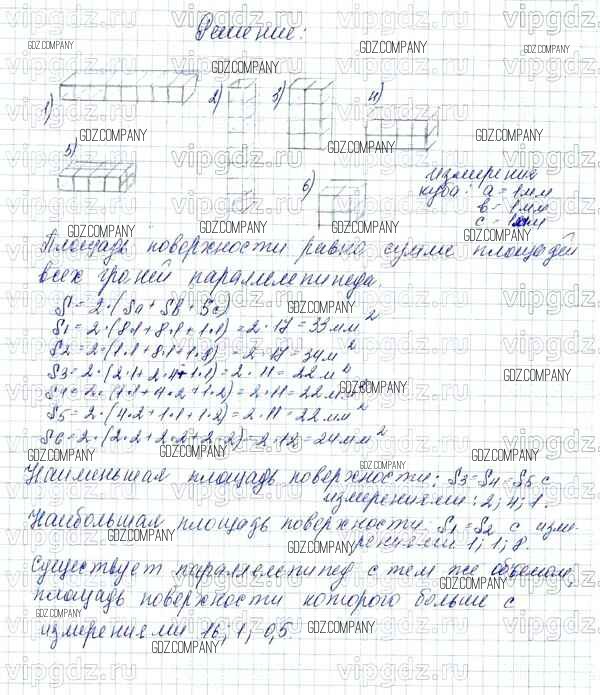 Решение:
1) 2) 3) 4)
5) 6)
измерение
куба: a = 1мм
b = 1мм
c = 1мм
Площадь поверхности равна сумме площадей
всех граней параллелепипеда.
S = 2·(Sa + Sb + Sc)
S1 = 2·(8·1+8·1+1·1) = 2·17 = 33мм²
S2 = 2·(1·1+8·1+1·8) = 2·17 = 34м²
S3 = 2·(2·1+2·4+1·1) = 2·11 = 22м²
S4 = 2·(1·1+4·2+1·2) = 2·11 = 22мм²
S5 = 2·(4·2+1·1+1·2) = 2·11 = 22мм²
S6 = 2·(2·2+2·2+2·2) = 2·12 = 24мм²
Наименьшая площадь поверхности: S3=S4=S5 с
измерениями: 2; 4; 1.
Наибольшая площадь поверхности S1 = S2 с изме-
рениями 1; 1; 8.
Существует параллелепипед с тем же объемом,
площадь поверхности которого больше с
измерениями 16; 1; 0,5.